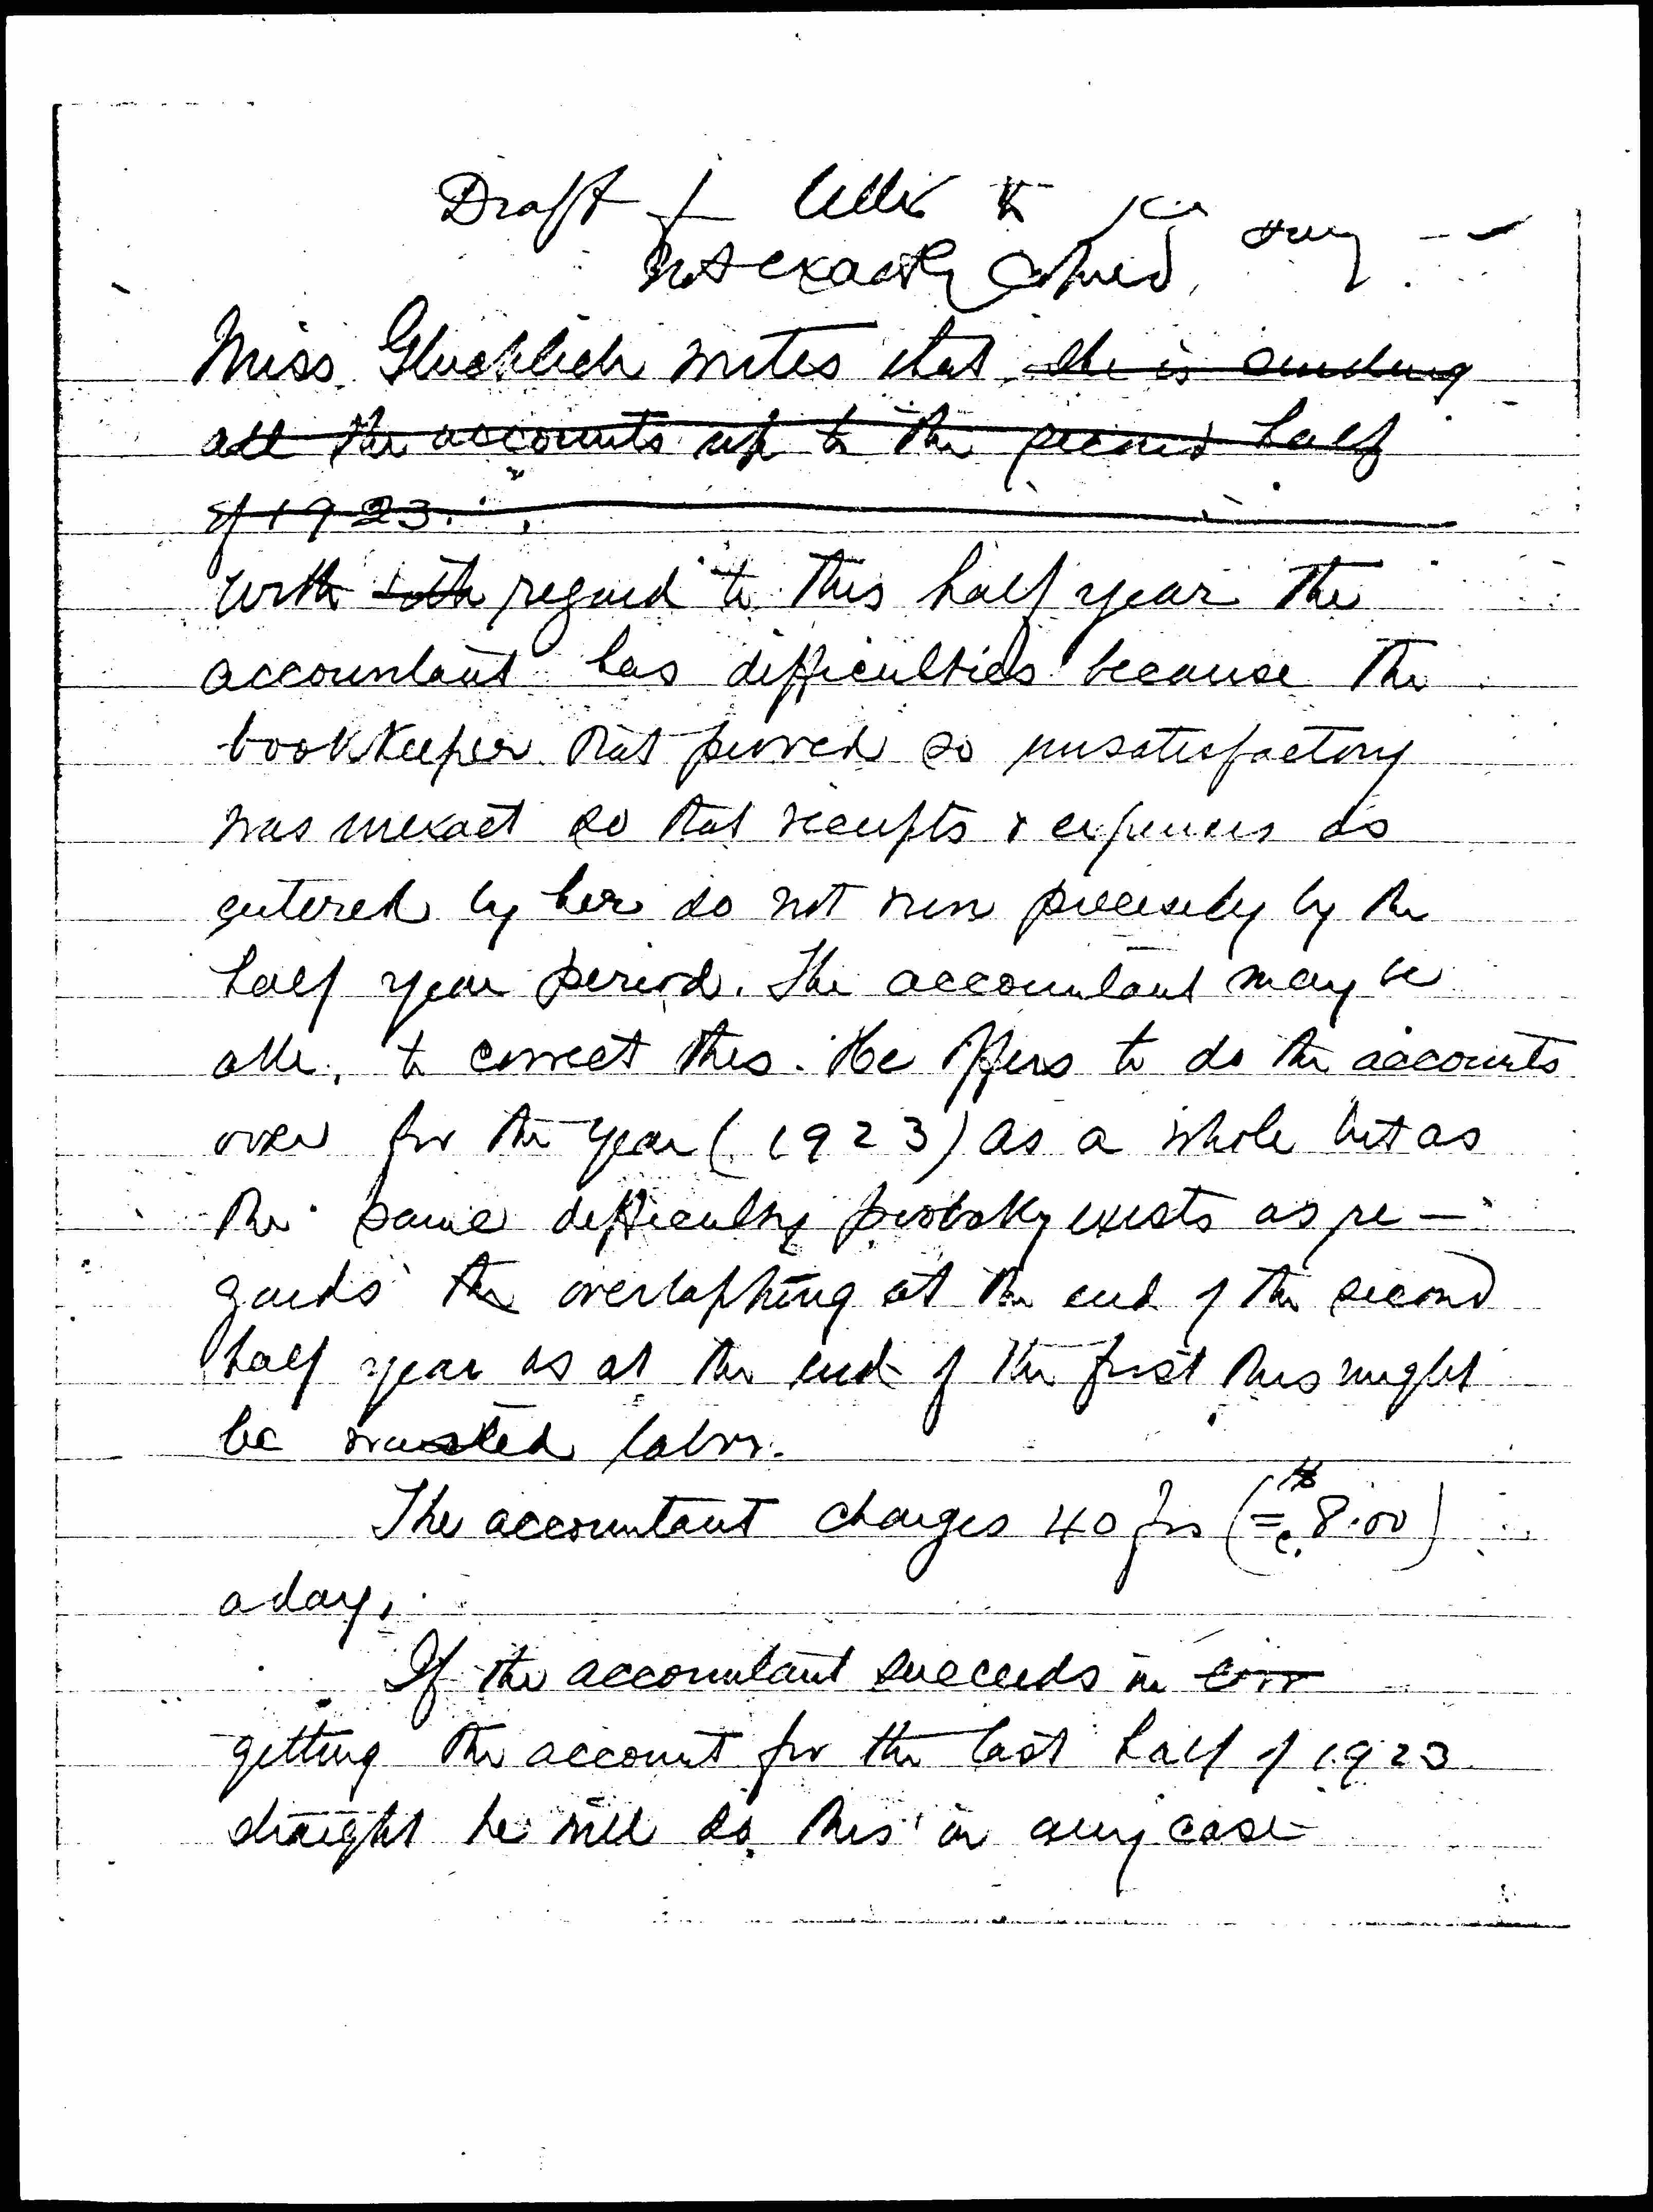 Draft of letter to
not exactly copied
Miss Gluchlich writes that she is sending
all the accounts up to the second half
of 1923.
With with regard to this half year the
accountant has difficulties because the
bookkeeper that proved so unsatisfactory
was inexact so that receipts & expenses as
entered by her do not run precisely by the
half year period. The accountant may be
able, to correct this. He offers to do the accounts
over for the year (1923) as a whole but as
the same difficulty probably exists as re-
gards the overlapping at the end of the second
half year as at the end of the first this might
be wasted labor.
The accountant charges 40 frs (= c. $8.00)
a day.
If the accountant succeeds in corr
getting the account for the last half of 1923
straight he will do this in any case